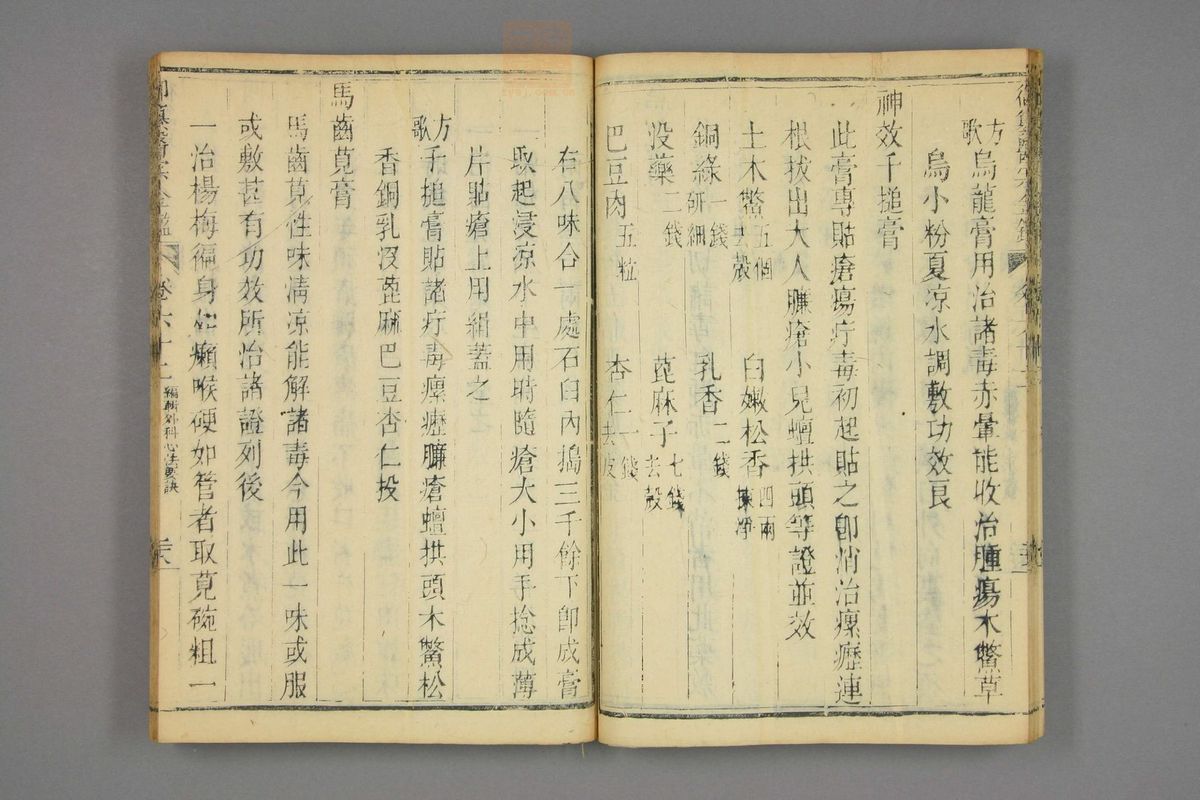 方歌烏龍膏用治諸毒赤暈能收治腫瘍木鱉草
烏小粉夏凉水調敷功效良
神效千搥膏
此膏專貼瘡瘍疔毒初起貼之卽消治瘰癧連
根拔出大人臁瘡小兒蟺拱頭等證並效
土木鱉五個去殼 白嫩松香四兩揀淨
銅綠一錢研細 乳香二錢
没藥二錢 蓖麻子七錢去殼
巴豆肉五粒 杏仁一錢去皮
右八味合一處石臼內搗三千餘下卽成膏
取起浸凉水中用時隨瘡大小用手捻成薄
片貼瘡上用絹蓋之
方歌千搥膏貼諸疔毒瘰癧臁瘡蟺拱頭木鱉松
香銅乳没蓖麻巴豆杏仁投
馬齒莧膏
馬齒莧性味清凉能解諸毒今用此一味或服
或敷甚有功效所治諸證列後
一治楊梅徧身如癩喉硬如管者取莧碗粗一
卷六十二
編輯外科心法要訣